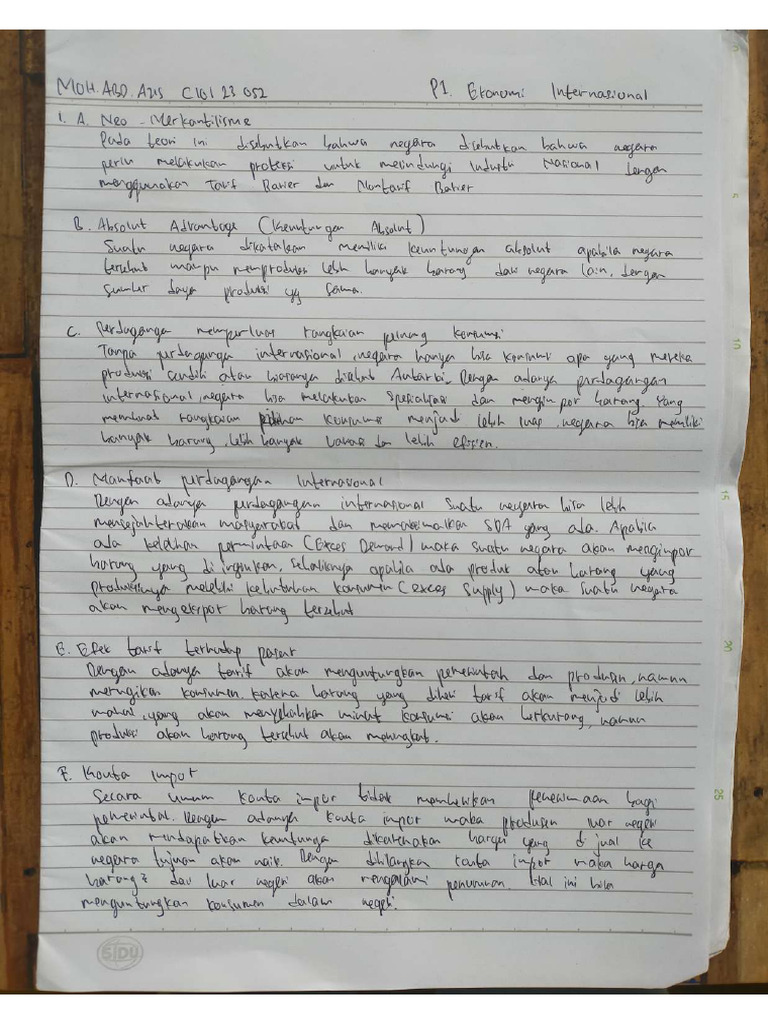 MOH. ABD. AZIS C101 23 052 P1. Ekonomi Internasional
1. A. Neo-Merkantilisme
Pada teori ini disebutkan bahwa negara disebutkan bahwa negara
perlu melakukan proteksi untuk melindungi Industri Nasional dengan
menggunakan Tarif Barier dan Nontarif Barier
B. Absolut Advantage (Keuntungan Absolut)
Suatu negara dikatakan memiliki keuntungan absolut apabila negara
tersebut mampu memproduksi lebih banyak barang dari negara lain, dengan
sumber daya produksi yg sama.
C. Perdagangan memperluas rangkaian peluang konsumsi
Tanpa perdagangan internasional, negara hanya bisa konsumsi apa yang mereka
produksi sendiri atau biasanya disebut Autarki. Dengan adanya perdagangan
internasional, negara bisa melakukan spesialisasi dan mengimpor barang. Yang
membuat rangkaian pilihan konsumsi menjadi lebih luas, negara bisa memiliki
banyak barang, lebih banyak variasi dan lebih efisien.
D. Manfaat perdagangan Internasional
Dengan adanya perdagangan internasional suatu negara bisa lebih
mensejahterakan masyarakat dan memaksimalkan SDA yang ada. Apabila
ada kelebihan permintaan (Exces Demand) maka suatu negara akan mengimpor
barang yang di inginkan, sebaliknya apabila ada produk atau barang yang
produksinya melebihi kebutuhan konsumen (exces Supply) maka suatu negara
akan mengekspor barang tersebut
E. Efek tarif terhadap pasar
Dengan adanya tarif akan menguntungkan pemerintah dan produsen, namun
merugikan konsumen. karena barang yang diberi tarif akan menjadi lebih
mahal, yang akan menyebabkan minat konsumsi akan berkurang, namun
produksi akan barang tersebut akan meningkat.
F. Kouta Impor
Secara umum kouta impor tidak memberikan penerimaan bagi
pemerintah. Dengan adanya kouta impor maka produsen luar negeri
akan mendapatkan keuntungan dikarenakan harga yang di jual ke
negara tujuan akan naik. Dengan dihilangkan kouta impor maka harga
barang2 dari luar negeri akan mengalami penurunan. Hal ini bisa
menguntungkan konsumen dalam negeri.
SIDU
5
10
15
20
25